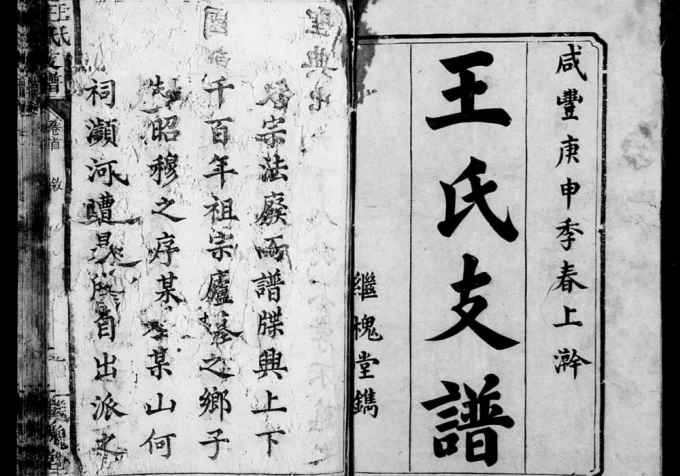 咸豐庚申季春上澣
王氏支譜
繼槐堂鐫
宗法廢而譜牒興上下
千百年祖宗廬墓之鄉子
昭穆之序某某山何
祠瀕河遭所自出派之
王氏支譜
卷首
敘
槐堂